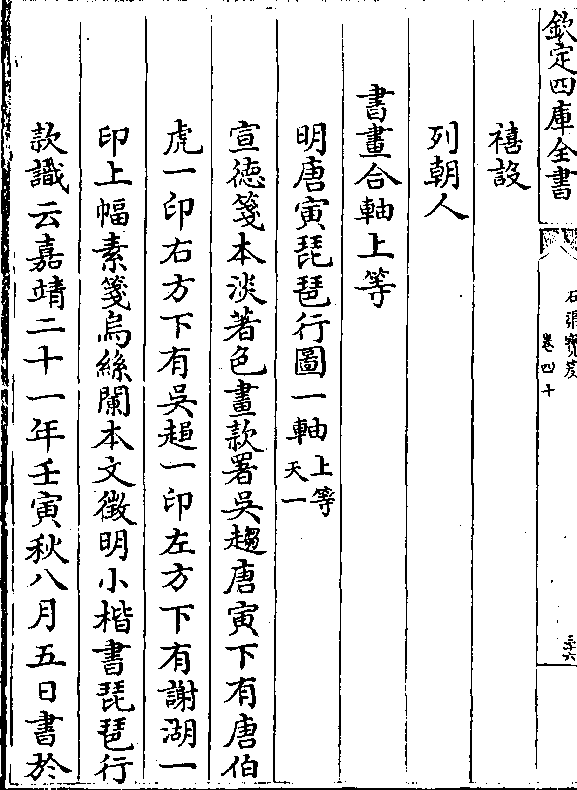 欽定四庫全書
石渠寶笈
卷四十
三十六
禧設
列朝人
書畫合軸上等
明唐寅琵琶行圖一軸上等天一
宣德箋本淡著色畫款署吳趨唐寅下有唐伯
虎一印右方下有吳趨一印左方下有謝湖一
印上幅素箋烏絲闌本文徵明小楷書琵琶行
款識云嘉靖二十一年壬寅秋八月五日書於